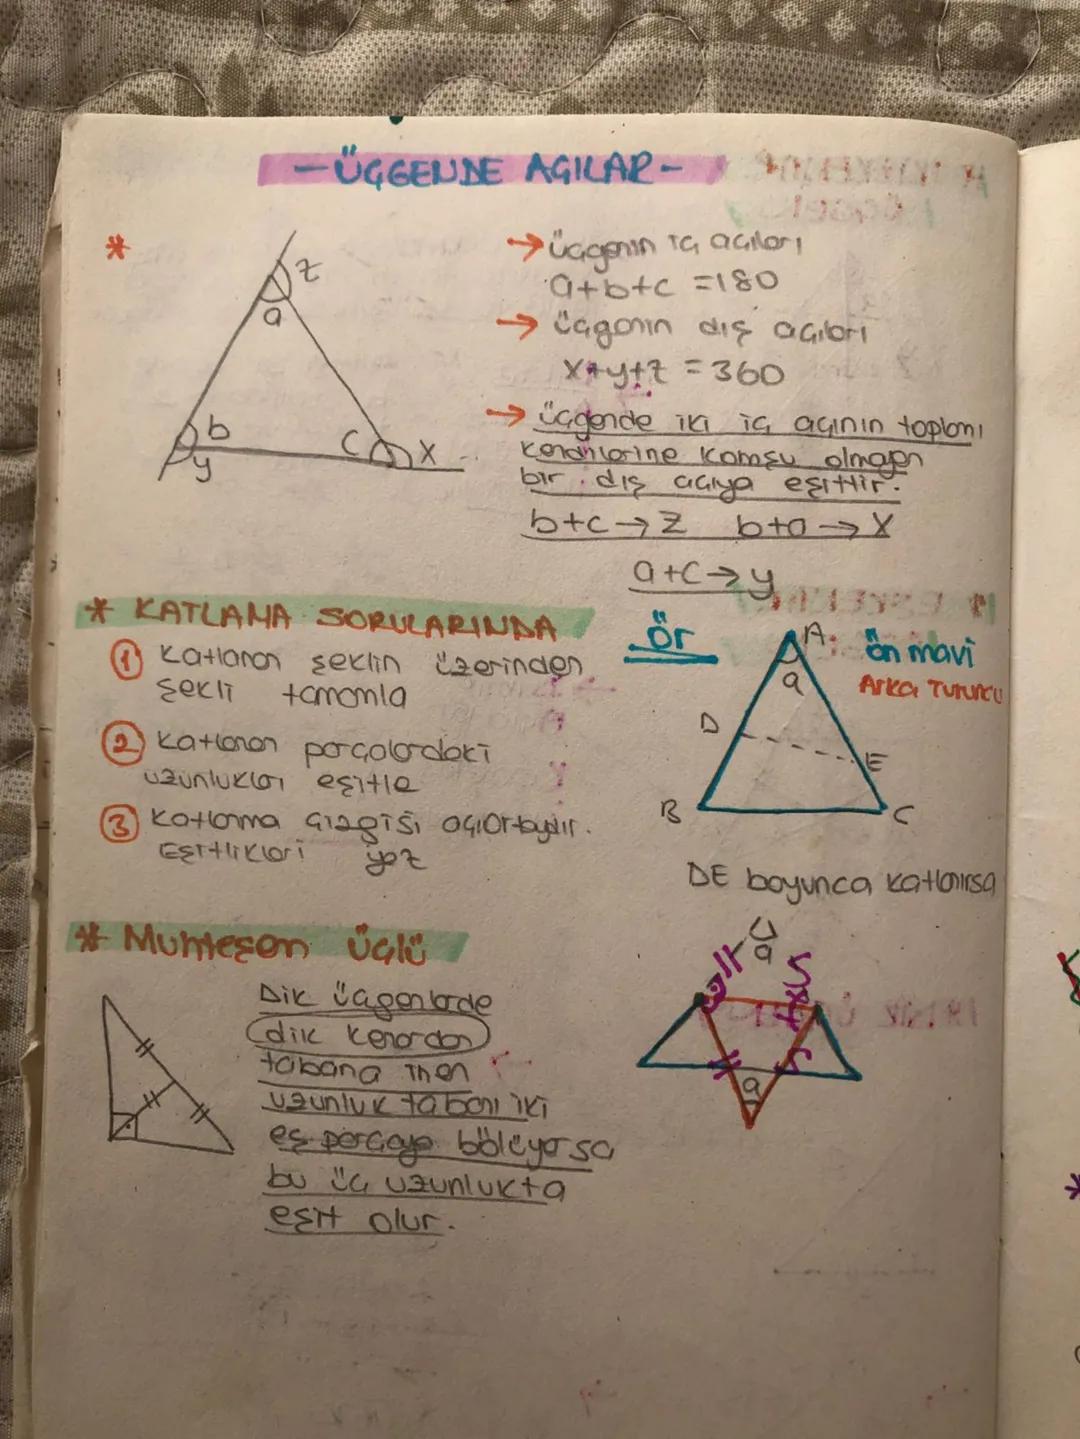 -ÜÇGENDE AÇILAR-
*
z
a
b
y
c
x
→ üçgenin iç açıları
a+b+c =180
→ üçgenin dış açıları
x+y+z = 360
→ üçgende iki iç açının toplamı
kendilerine komşu olmayan
bir dış açıya eşittir.
b+c→z b+a→x
a+c→y
* KATLAMA SORULARINDA
1 Katlanan şeklin üzerinden
şekli tamamla
2 Katlanan parçalardaki
uzunlukları eşitle
3 Katlama çizgisi açıortaydır.
Eşitlikleri yaz
ör
A
a
D
E
B
C
ön mavi
Arka Turuncu
DE boyunca katlanırsa
a
a
* Muhteşem üçlü
Dik üçgenlerde
dik kenardan
tabana inen
uzunluk tabanı iki
eş parçaya bölüyorsa
bu üç uzunlukta
eşit olur.